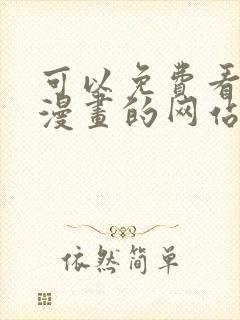 可以免费看
漫画的网站
依然简单